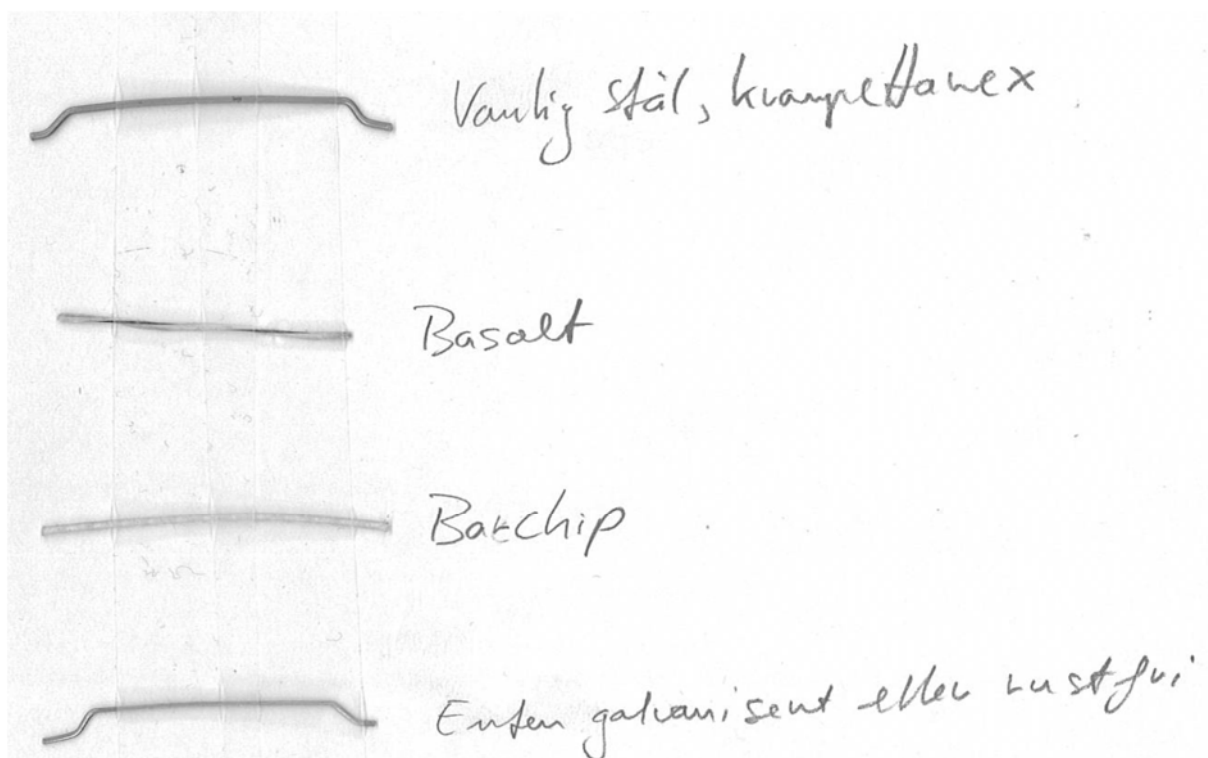 Vanlig stål, krampeHarex
Basalt
Barchip
Enten galvanisert eller rustfri